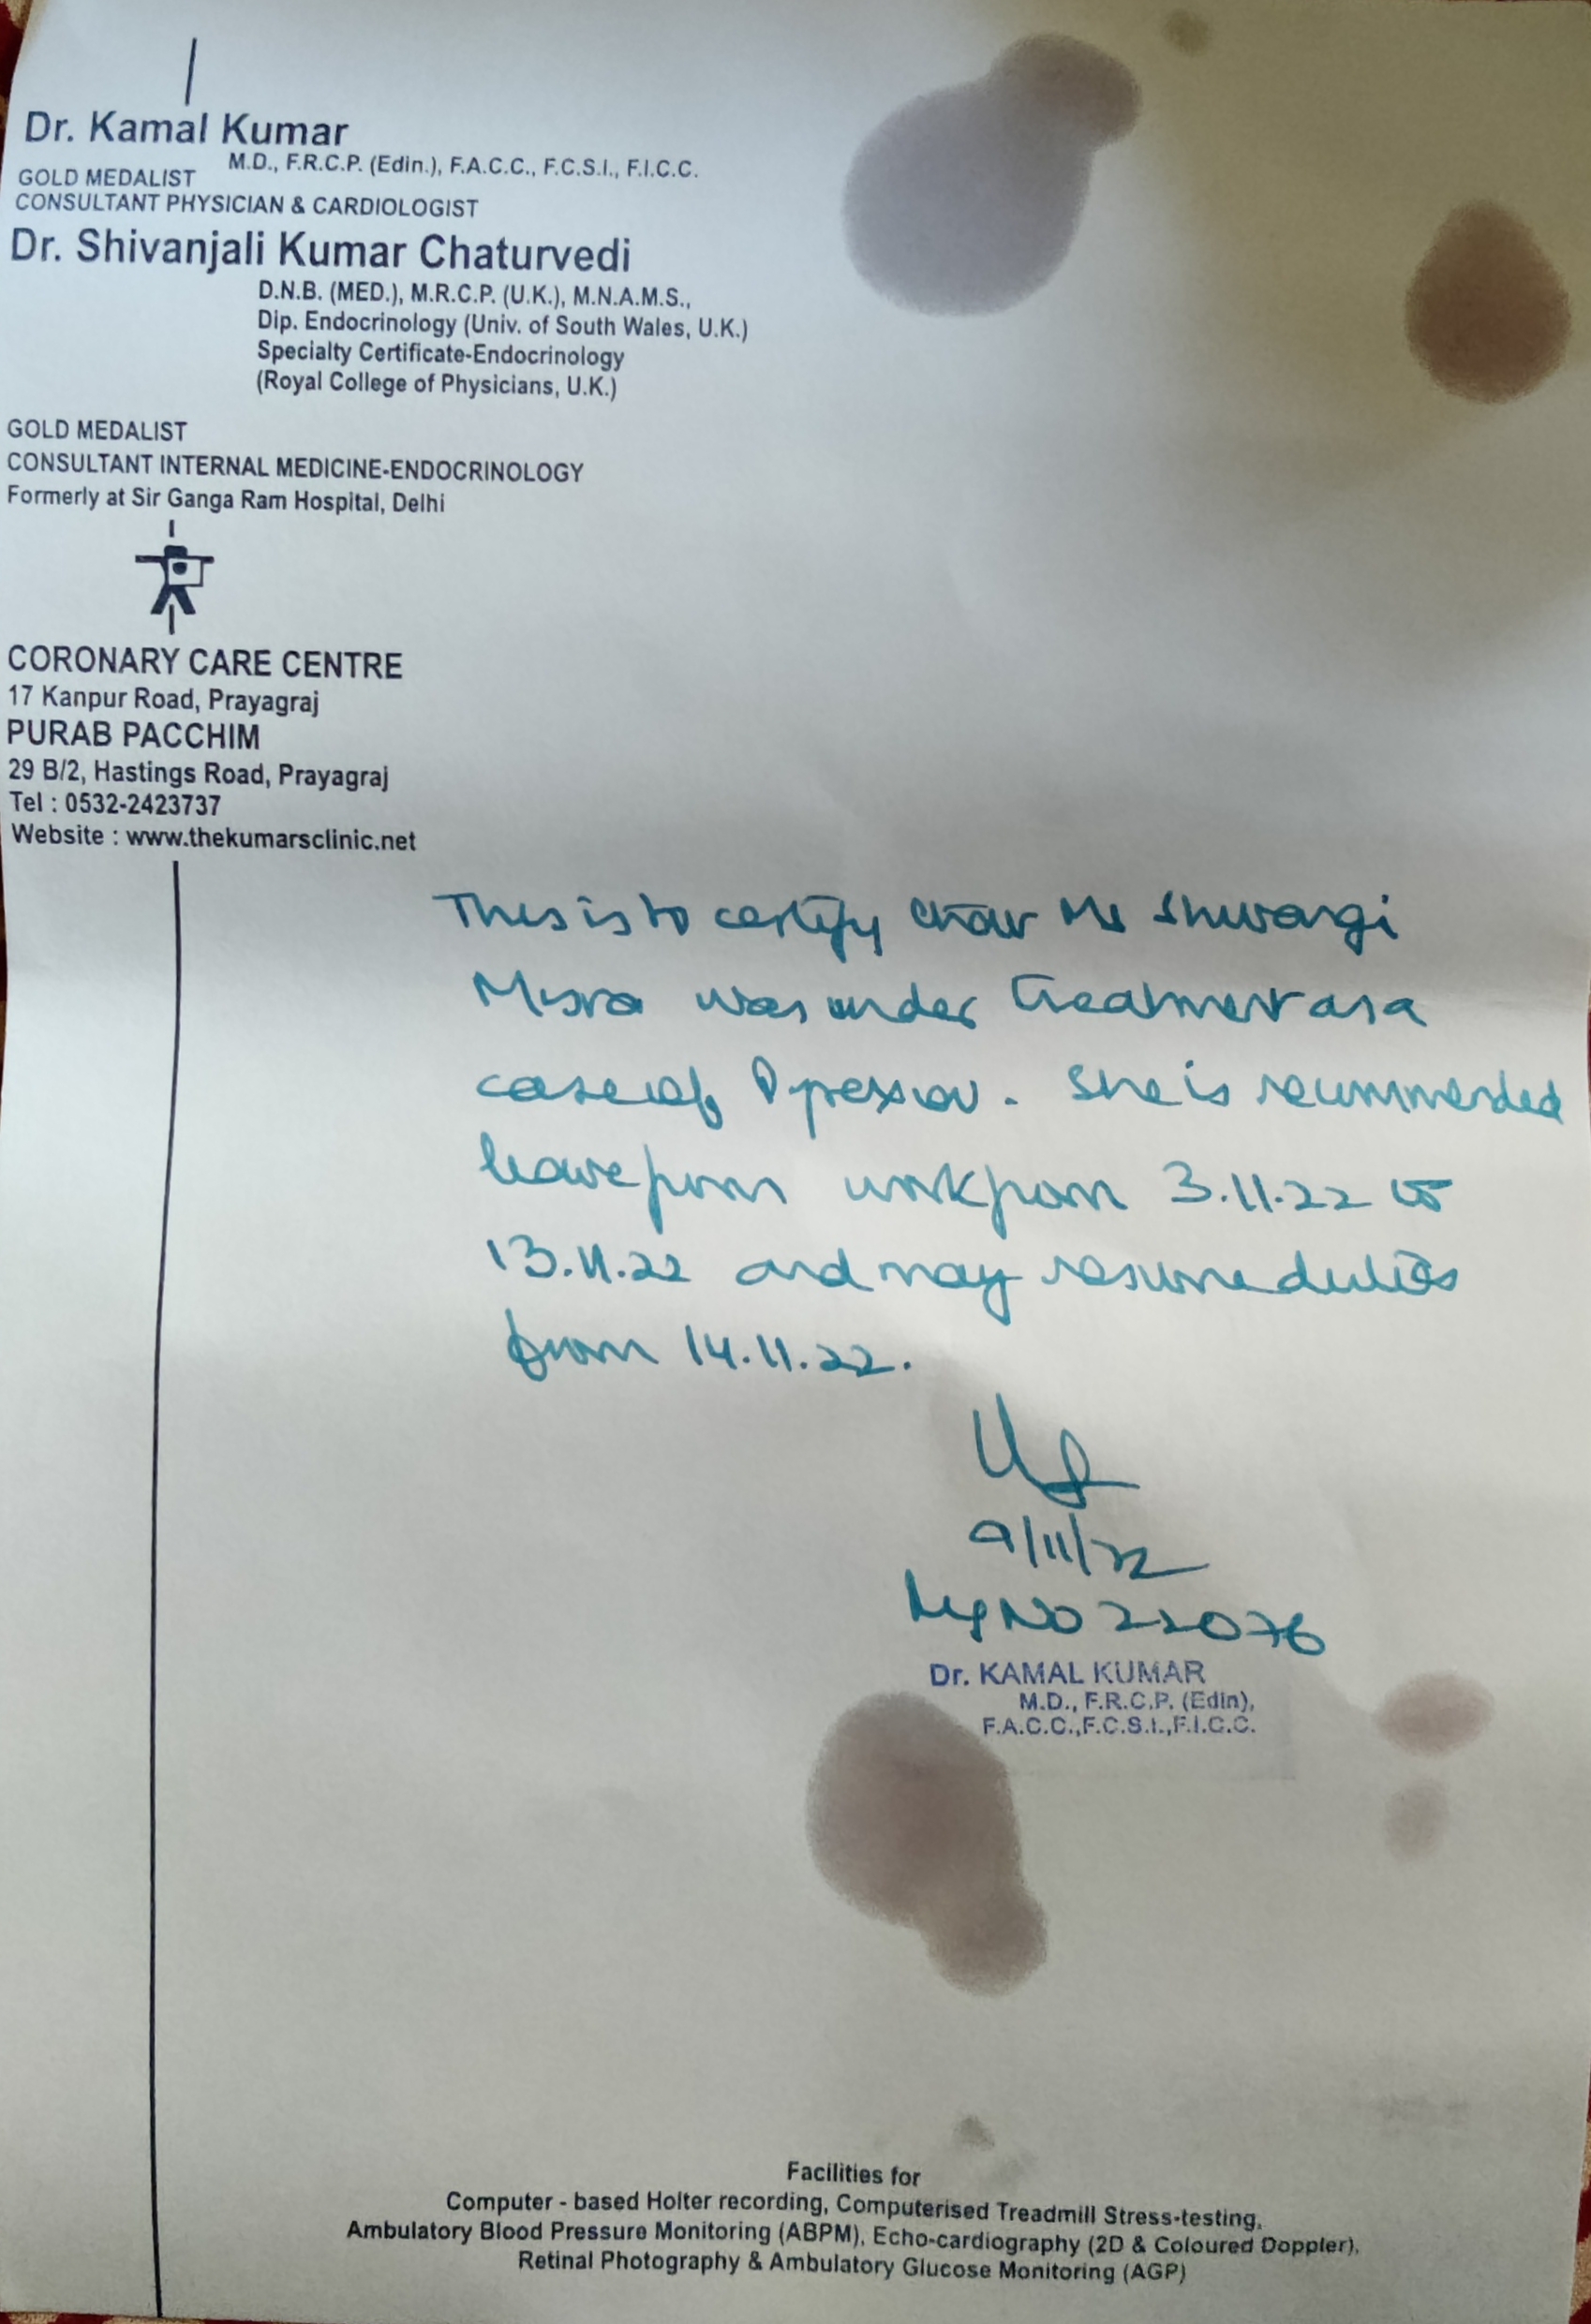 Dr. Kamal Kumar
M.D., F.R.C.P. (Edin.), F.A.C.C., F.C.S.I., F.I.C.C.
GOLD MEDALIST
CONSULTANT PHYSICIAN & CARDIOLOGIST
Dr. Shivanjali Kumar Chaturvedi
D.N.B. (MED.), M.R.C.P. (U.K.), M.N.A.M.S.,
Dip. Endocrinology (Univ. of South Wales, U.K.)
Specialty Certificate-Endocrinology
(Royal College of Physicians, U.K.)
GOLD MEDALIST
CONSULTANT INTERNAL MEDICINE-ENDOCRINOLOGY
Formerly at Sir Ganga Ram Hospital, Delhi
CORONARY CARE CENTRE
17 Kanpur Road, Prayagraj
PURAB PACCHIM
29 B/2, Hastings Road, Prayagraj
Tel : 0532-2423737
Website : www.thekumarsclinic.net
This is to certify that Ms Shivangi
Misra was under treatment as a
case of Pyrexia. She is recommended
leave from work from 3.11.22 to
13.11.22 and may resume duties
from 14.11.22.
9/11/22
Reg No 22076
Dr. KAMAL KUMAR
M.D., F.R.C.P. (Edin),
F.A.C.C.,F.C.S.I.,F.I.C.C.
Facilities for
Computer - based Holter recording, Computerised Treadmill Stress-testing,
Ambulatory Blood Pressure Monitoring (ABPM), Echo-cardiography (2D & Coloured Doppler),
Retinal Photography & Ambulatory Glucose Monitoring (AGP)